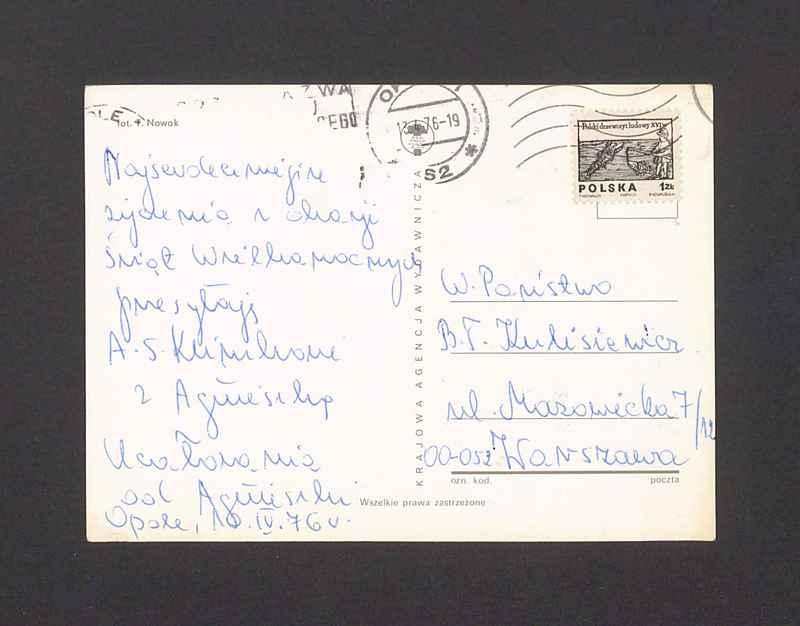 fot. T. Nowak
Najserdeczniejsze
życzenia z okazji
Świąt Wielkanocnych
przesyłają
A. S. Klimkowie
z Agnieszką
Ucałowania
od Agnieszki
Opole, 10.IV.76 r.
KRAJOWA AGENCJA WYDAWNICZA
Wszelkie prawa zastrzeżone
EGO
76-19
Polski drzeworyt ludowy XVI w.
POLSKA 1 ZŁ
W. Państwo
B.T. Kulisiewicz
ul. Mazowiecka 7/12
00-052 Warszawa
ozn. kod. poczta